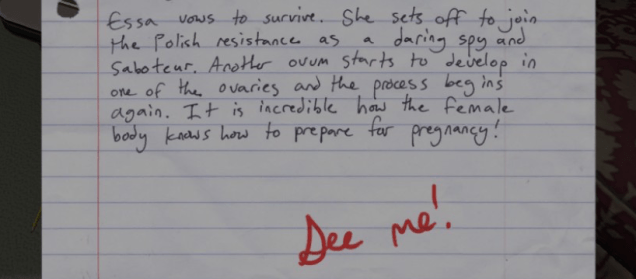 Essa vows to survive. She sets off to join
the Polish resistance as a daring spy and
Saboteur. Another ovum starts to develop in
one of the ovaries and the process begins
again. It is incredible how the female
body knows how to prepare for pregnancy!
See me!